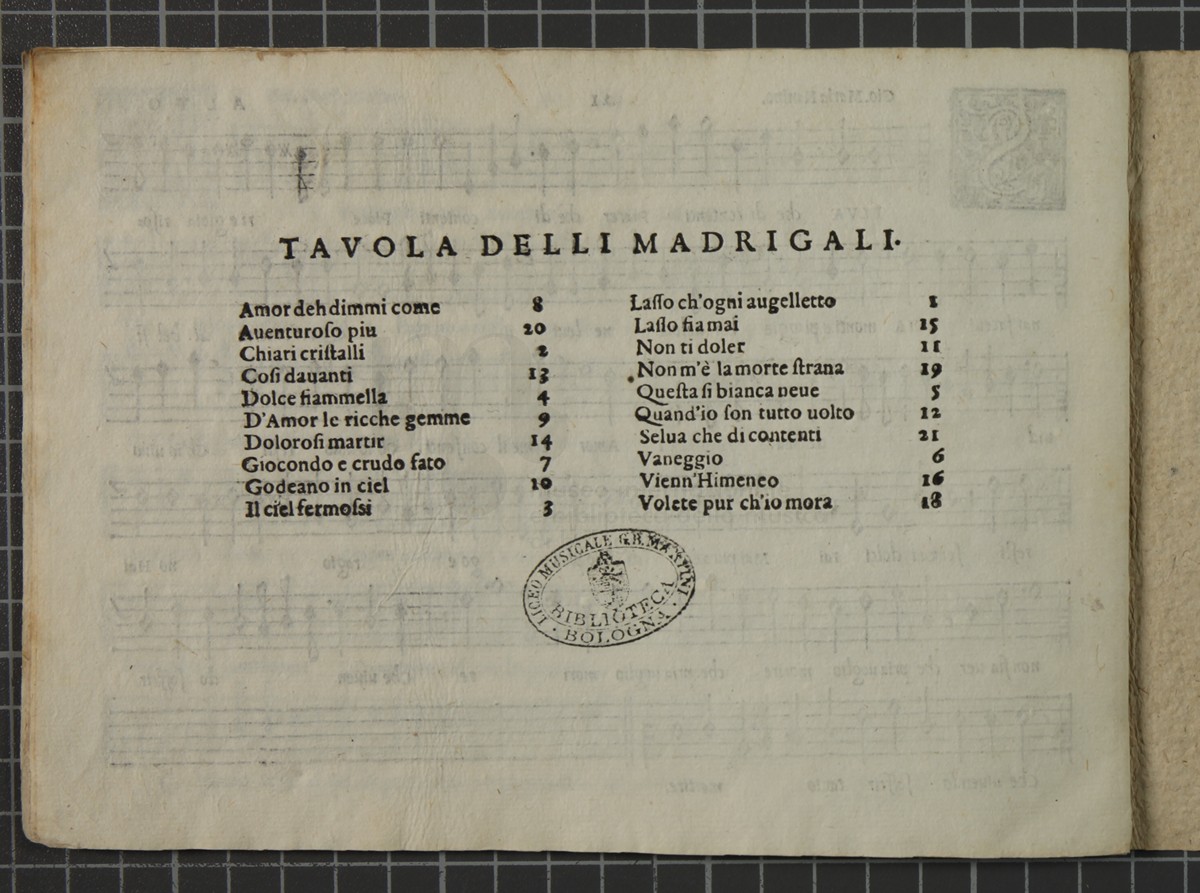 TAVOLA DELLI MADRIGALI.
Amor deh dimmi come 8
Auenturoſo piu 20
Chiari criſtalli 2
Coſi dauanti 13
Dolce fiammella 4
D'Amor le ricche gemme 9
Doloroſi martir 14
Giocondo e crudo fato 7
Godeano in ciel 10
Il ciel fermoſsi 3
Laſſo ch'ogni augelletto 1
Laſſo fia mai 15
Non ti doler 11
Non m'è la morte ſtrana 19
Queſta ſi bianca neue 5
Quand'io ſon tutto uolto 12
Selua che di contenti 21
Vaneggio 6
Vienn'Himeneo 16
Volete pur ch'io mora 18
LICEO MUSICALE G.B. MARTINI
BIBLIOTECA
BOLOGNA